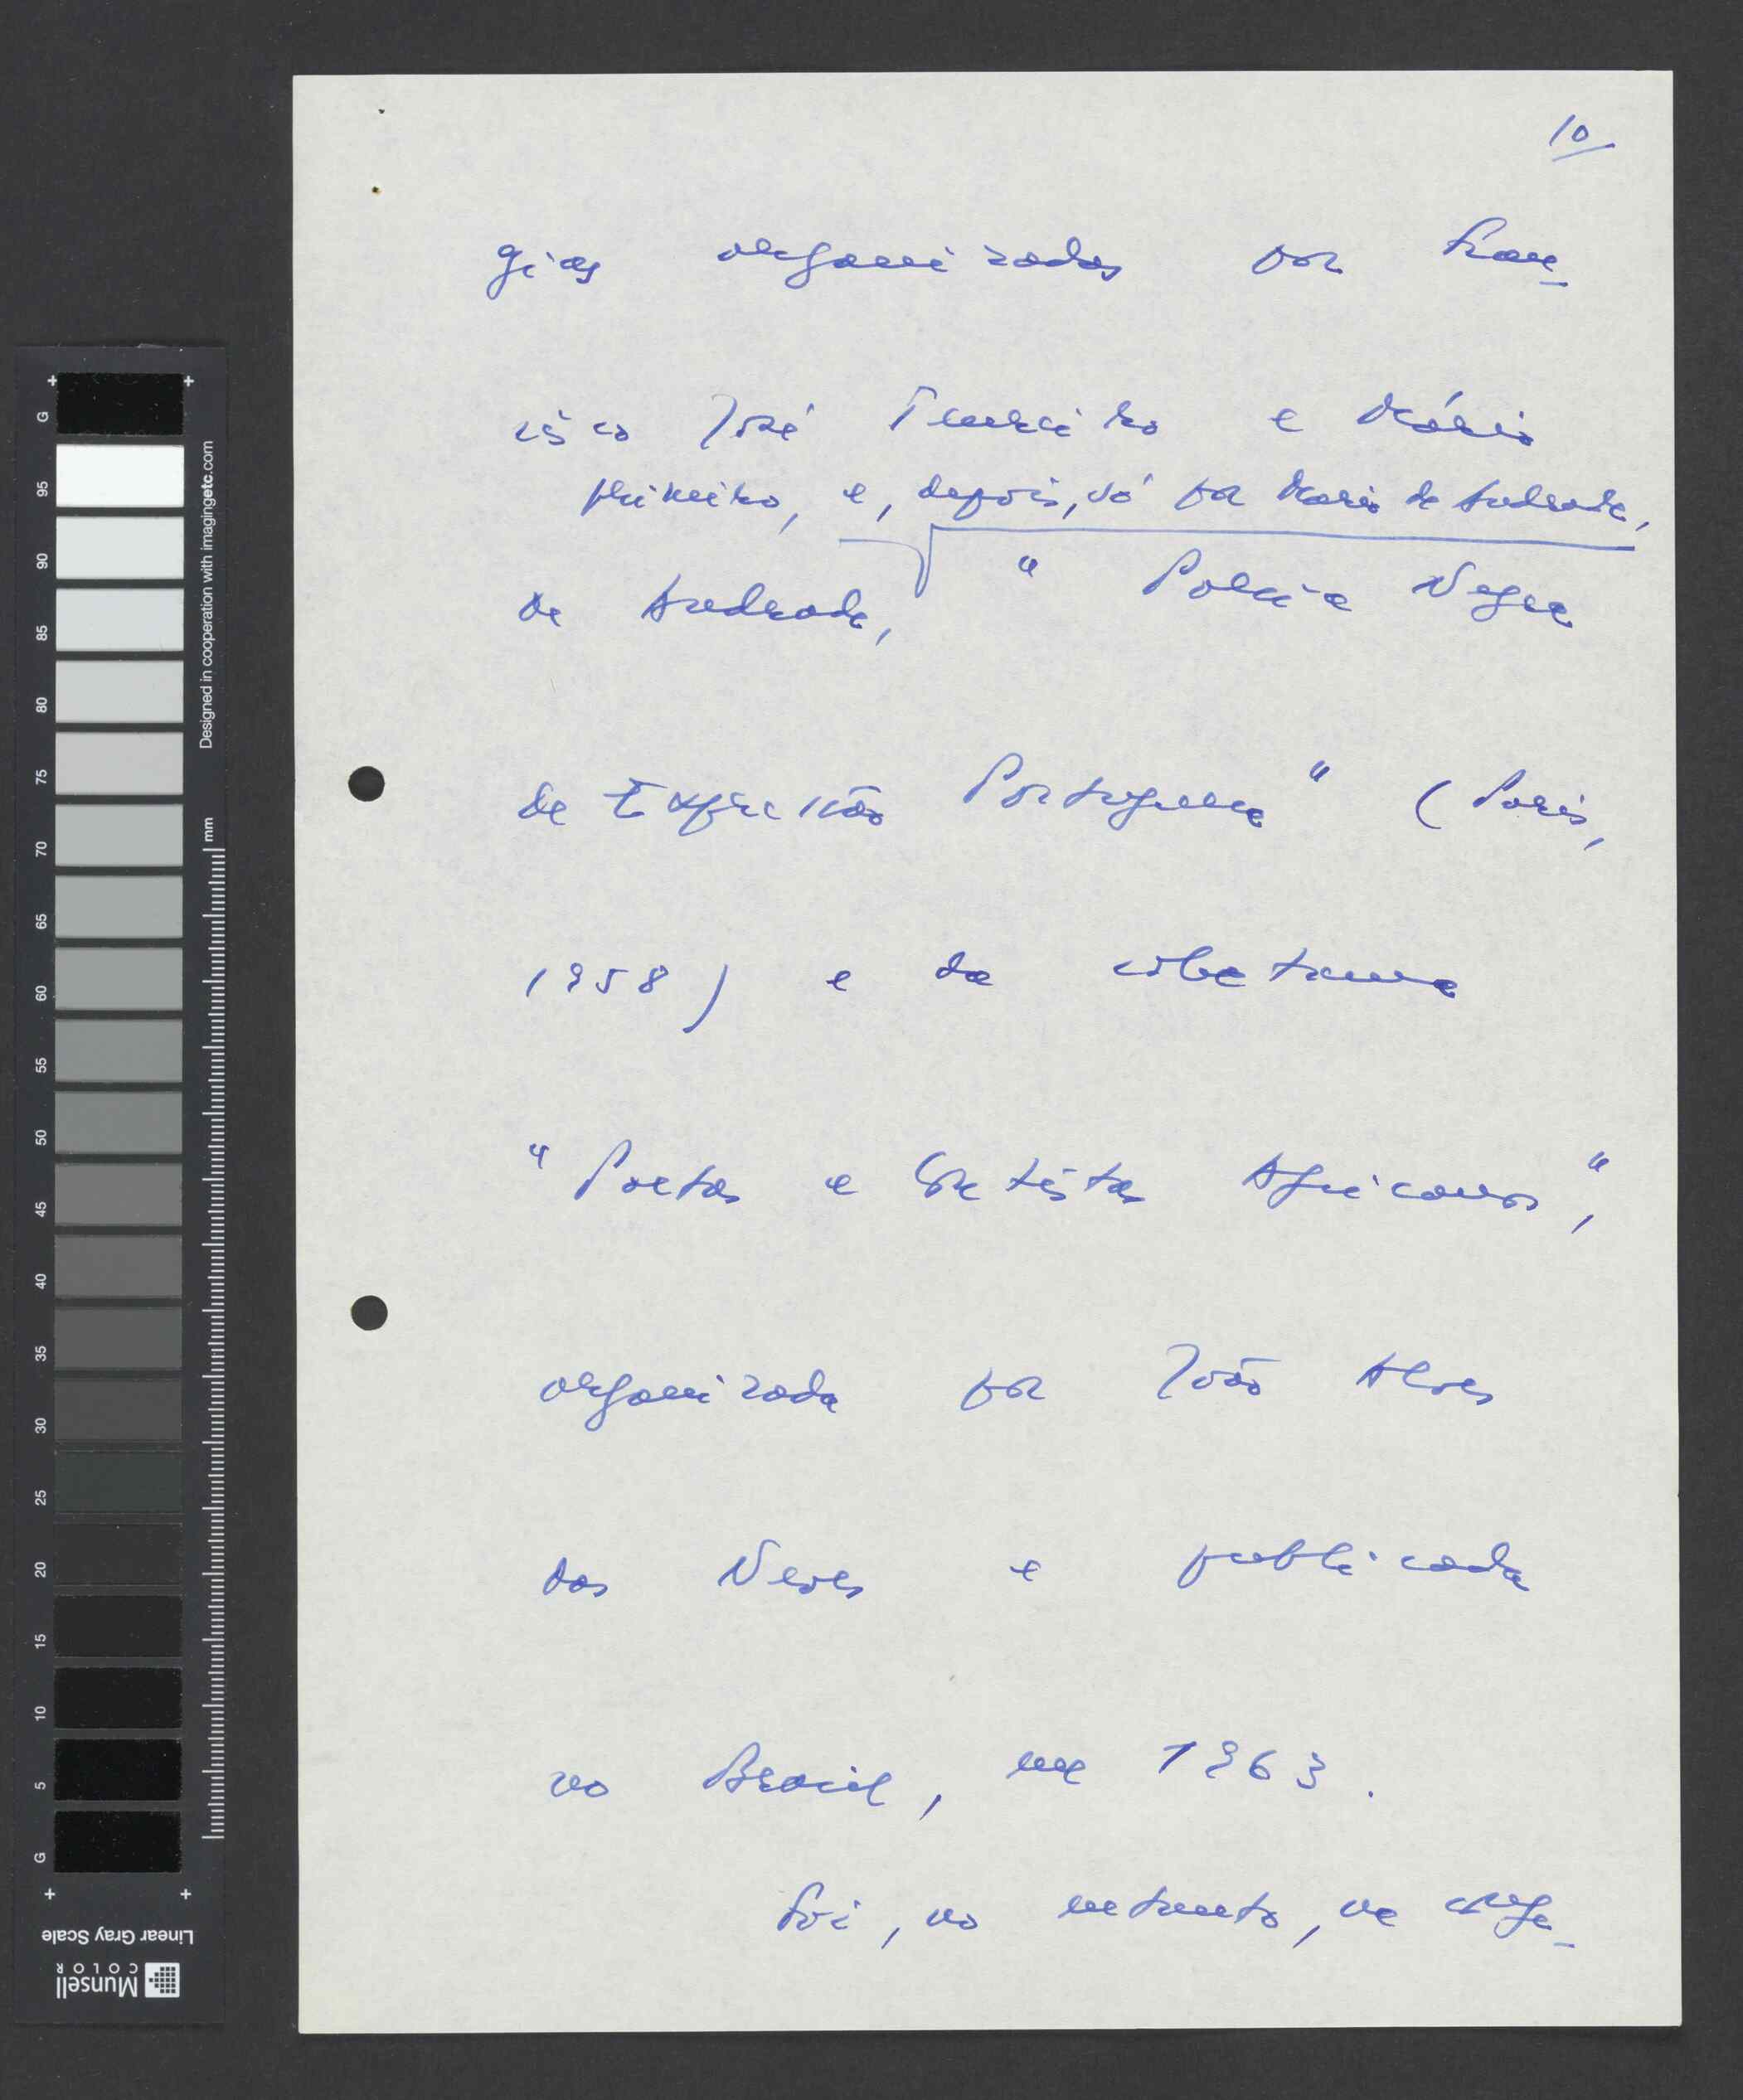 10
gias organizadas por Fran-
cisco José Tenreiro e Mário
primeiro, e, depois, só por Mário de Andrade,
de Andrade, " Poesia Negra
de Expressão Portuguesa" (Paris,
1958) e da coletanea
"Poetas e Contistas Africanos",
organizada por João Alves
das Neves e publicada
no Brasil, em 1963.
Foi, no entanto, na
G 95 90 85 80 75 70 65 60 55 50 45 40 35 30 25 20 15 10 5 G
mm
Designed in cooperation with imagingetc.com
Linear Gray Scale
Munsell
COLOR